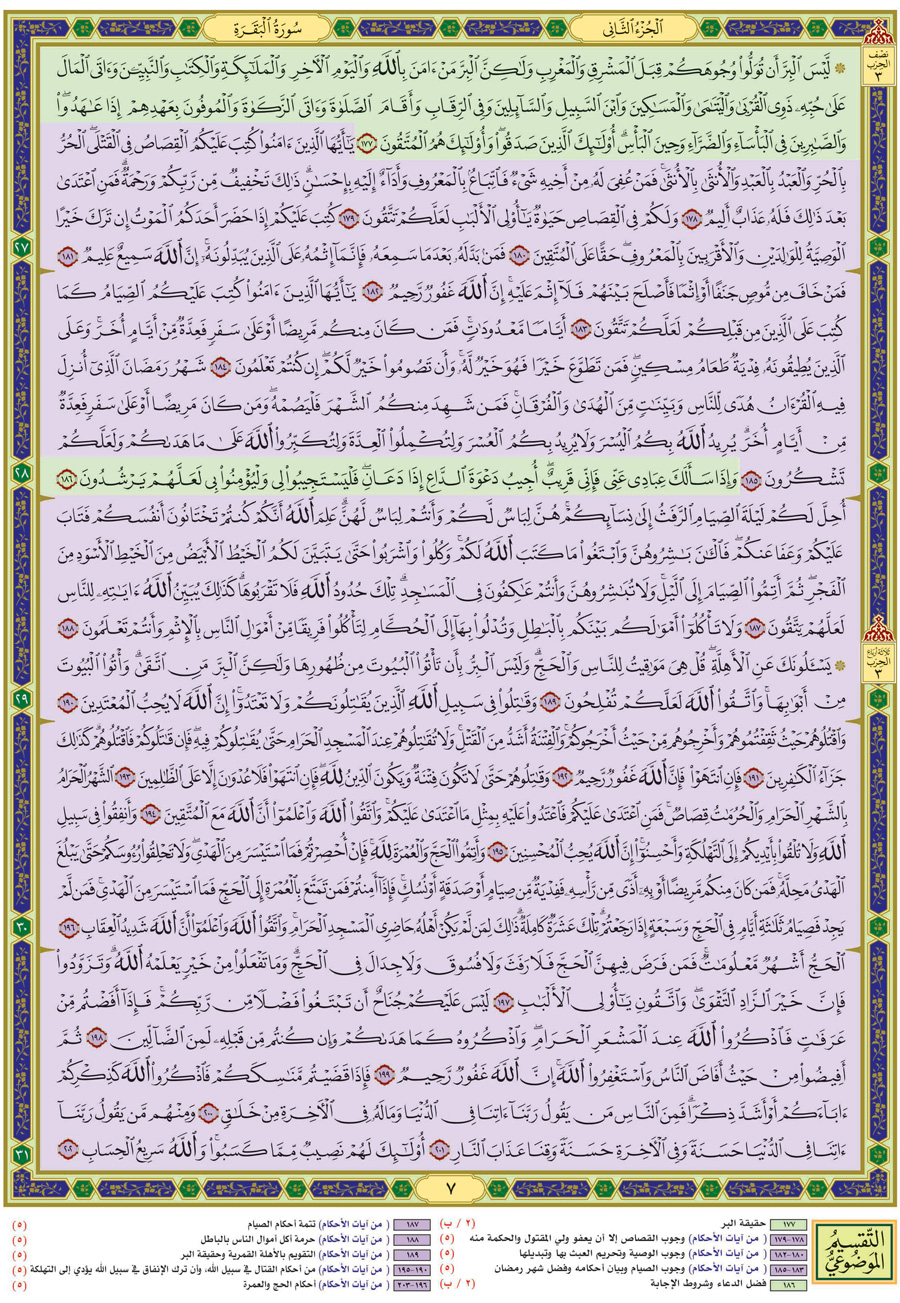 الجُزْءُ الثَّانِي
سُورَةُ البَقَرَةِ
نصف الحزب ٣
۞ لَّيْسَ ٱلْبِرَّ أَن تُوَلُّوا۟ وُجُوهَكُمْ قِبَلَ ٱلْمَشْرِقِ وَٱلْمَغْرِبِ وَلَٰكِنَّ ٱلْبِرَّ مَنْ ءَامَنَ بِٱللَّهِ وَٱلْيَوْمِ ٱلْءَاخِرِ وَٱلْمَلَٰٓئِكَةِ وَٱلْكِتَٰبِ وَٱلنَّبِيِّـۧنَ وَءَاتَى ٱلْمَالَ
عَلَىٰ حُبِّهِۦ ذَوِى ٱلْقُرْبَىٰ وَٱلْيَتَٰمَىٰ وَٱلْمَسَٰكِينَ وَٱبْنَ ٱلسَّبِيلِ وَٱلسَّآئِلِينَ وَفِى ٱلرِّقَابِ وَأَقَامَ ٱلصَّلَوٰةَ وَءَاتَى ٱلزَّكَوٰةَ وَٱلْمُوفُونَ بِعَهْدِهِمْ إِذَا عَٰهَدُوا۟ۖ
وَٱلصَّٰبِرِينَ فِى ٱلْبَأْسَآءِ وَٱلضَّرَّآءِ وَحِينَ ٱلْبَأْسِۗ أُو۟لَٰٓئِكَ ٱلَّذِينَ صَدَقُوا۟ۖ وَأُو۟لَٰٓئِكَ هُمُ ٱلْمُتَّقُونَ ١٧٧ يَٰٓأَيُّهَا ٱلَّذِينَ ءَامَنُوا۟ كُتِبَ عَلَيْكُمُ ٱلْقِصَاصُ فِى ٱلْقَتْلَىۖ ٱلْحُرُّ
بِٱلْحُرِّ وَٱلْعَبْدُ بِٱلْعَبْدِ وَٱلْأُنثَىٰ بِٱلْأُنثَىٰۚ فَمَنْ عُفِىَ لَهُۥ مِنْ أَخِيهِ شَىْءٌ فَٱتِّبَاعٌۢ بِٱلْمَعْرُوفِ وَأَدَآءٌ إِلَيْهِ بِإِحْسَٰنٍۗ ذَٰلِكَ تَخْفِيفٌ مِّن رَّبِّكُمْ وَرَحْمَةٌۗ فَمَنِ ٱعْتَدَىٰ
بَعْدَ ذَٰلِكَ فَلَهُۥ عَذَابٌ أَلِيمٌ ١٧٨ وَلَكُمْ فِى ٱلْقِصَاصِ حَيَوٰةٌ يَٰٓأُو۟لِى ٱلْأَلْبَٰبِ لَعَلَّكُمْ تَتَّقُونَ ١٧٩ كُتِبَ عَلَيْكُمْ إِذَا حَضَرَ أَحَدَكُمُ ٱلْمَوْتُ إِن تَرَكَ خَيْرًا
ٱلْوَصِيَّةُ لِلْوَٰلِدَيْنِ وَٱلْأَقْرَبِينَ بِٱلْمَعْرُوفِۖ حَقًّا عَلَى ٱلْمُتَّقِينَ ١٨٠ فَمَنۢ بَدَّلَهُۥ بَعْدَمَا سَمِعَهُۥ فَإِنَّمَآ إِثْمُهُۥ عَلَى ٱلَّذِينَ يُبَدِّلُونَهُۥٓۚ إِنَّ ٱللَّهَ سَمِيعٌ عَلِيمٌ ١٨١
فَمَنْ خَافَ مِن مُّوصٍ جَنَفًا أَوْ إِثْمًا فَأَصْلَحَ بَيْنَهُمْ فَلَآ إِثْمَ عَلَيْهِۚ إِنَّ ٱللَّهَ غَفُورٌ رَّحِيمٌ ١٨٢ يَٰٓأَيُّهَا ٱلَّذِينَ ءَامَنُوا۟ كُتِبَ عَلَيْكُمُ ٱلصِّيَامُ كَمَا
كُتِبَ عَلَى ٱلَّذِينَ مِن قَبْلِكُمْ لَعَلَّكُمْ تَتَّقُونَ ١٨٣ أَيَّامًا مَّعْدُودَٰتٍۚ فَمَن كَانَ مِنكُم مَّرِيضًا أَوْ عَلَىٰ سَفَرٍ فَعِدَّةٌ مِّنْ أَيَّامٍ أُخَرَۚ وَعَلَى
ٱلَّذِينَ يُطِيقُونَهُۥ فِدْيَةٌ طَعَامُ مِسْكِينٍۖ فَمَن تَطَوَّعَ خَيْرًا فَهُوَ خَيْرٌ لَّهُۥۚ وَأَن تَصُومُوا۟ خَيْرٌ لَّكُمْۖ إِن كُنتُمْ تَعْلَمُونَ ١٨٤ شَهْرُ رَمَضَانَ ٱلَّذِىٓ أُنزِلَ
فِيهِ ٱلْقُرْءَانُ هُدًى لِّلنَّاسِ وَبَيِّنَٰتٍ مِّنَ ٱلْهُدَىٰ وَٱلْفُرْقَانِۚ فَمَن شَهِدَ مِنكُمُ ٱلشَّهْرَ فَلْيَصُمْهُۖ وَمَن كَانَ مَرِيضًا أَوْ عَلَىٰ سَفَرٍ فَعِدَّةٌ
مِّنْ أَيَّامٍ أُخَرَۗ يُرِيدُ ٱللَّهُ بِكُمُ ٱلْيُسْرَ وَلَا يُرِيدُ بِكُمُ ٱلْعُسْرَ وَلِتُكْمِلُوا۟ ٱلْعِدَّةَ وَلِتُكَبِّرُوا۟ ٱللَّهَ عَلَىٰ مَا هَدَىٰكُمْ وَلَعَلَّكُمْ
تَشْكُرُونَ ١٨٥ وَإِذَا سَأَلَكَ عِبَادِى عَنِّى فَإِنِّى قَرِيبٌۖ أُجِيبُ دَعْوَةَ ٱلدَّاعِ إِذَا دَعَانِۖ فَلْيَسْتَجِيبُوا۟ لِى وَلْيُؤْمِنُوا۟ بِى لَعَلَّهُمْ يَرْشُدُونَ ١٨٦
أُحِلَّ لَكُمْ لَيْلَةَ ٱلصِّيَامِ ٱلرَّفَثُ إِلَىٰ نِسَآئِكُمْۚ هُنَّ لِبَاسٌ لَّكُمْ وَأَنتُمْ لِبَاسٌ لَّهُنَّۗ عَلِمَ ٱللَّهُ أَنَّكُمْ كُنتُمْ تَخْتَانُونَ أَنفُسَكُمْ فَتَابَ
عَلَيْكُمْ وَعَفَا عَنكُمْۖ فَٱلْـَٰٔنَ بَٰشِرُوهُنَّ وَٱبْتَغُوا۟ مَا كَتَبَ ٱللَّهُ لَكُمْۚ وَكُلُوا۟ وَٱشْرَبُوا۟ حَتَّىٰ يَتَبَيَّنَ لَكُمُ ٱلْخَيْطُ ٱلْأَبْيَضُ مِنَ ٱلْخَيْطِ ٱلْأَسْوَدِ مِنَ
ٱلْفَجْرِۖ ثُمَّ أَتِمُّوا۟ ٱلصِّيَامَ إِلَى ٱلَّيْلِۚ وَلَا تُبَٰشِرُوهُنَّ وَأَنتُمْ عَٰكِفُونَ فِى ٱلْمَسَٰجِدِۗ تِلْكَ حُدُودُ ٱللَّهِ فَلَا تَقْرَبُوهَاۗ كَذَٰلِكَ يُبَيِّنُ ٱللَّهُ ءَايَٰتِهِۦ لِلنَّاسِ
لَعَلَّهُمْ يَتَّقُونَ ١٨٧ وَلَا تَأْكُلُوٓا۟ أَمْوَٰلَكُم بَيْنَكُم بِٱلْبَٰطِلِ وَتُدْلُوا۟ بِهَآ إِلَى ٱلْحُكَّامِ لِتَأْكُلُوا۟ فَرِيقًا مِّنْ أَمْوَٰلِ ٱلنَّاسِ بِٱلْإِثْمِ وَأَنتُمْ تَعْلَمُونَ ١٨٨
ثلاثة أرباع الحزب ٣
۞ يَسْـَٔلُونَكَ عَنِ ٱلْأَهِلَّةِۖ قُلْ هِىَ مَوَٰقِيتُ لِلنَّاسِ وَٱلْحَجِّۗ وَلَيْسَ ٱلْبِرُّ بِأَن تَأْتُوا۟ ٱلْبُيُوتَ مِن ظُهُورِهَا وَلَٰكِنَّ ٱلْبِرَّ مَنِ ٱتَّقَىٰۗ وَأْتُوا۟ ٱلْبُيُوتَ
مِنْ أَبْوَٰبِهَاۚ وَٱتَّقُوا۟ ٱللَّهَ لَعَلَّكُمْ تُفْلِحُونَ ١٨٩ وَقَٰتِلُوا۟ فِى سَبِيلِ ٱللَّهِ ٱلَّذِينَ يُقَٰتِلُونَكُمْ وَلَا تَعْتَدُوٓا۟ۚ إِنَّ ٱللَّهَ لَا يُحِبُّ ٱلْمُعْتَدِينَ ١٩٠
وَٱقْتُلُوهُمْ حَيْثُ ثَقِفْتُمُوهُمْ وَأَخْرِجُوهُم مِّنْ حَيْثُ أَخْرَجُوكُمْۚ وَٱلْفِتْنَةُ أَشَدُّ مِنَ ٱلْقَتْلِۚ وَلَا تُقَٰتِلُوهُمْ عِندَ ٱلْمَسْجِدِ ٱلْحَرَامِ حَتَّىٰ يُقَٰتِلُوكُمْ فِيهِۖ فَإِن قَٰتَلُوكُمْ فَٱقْتُلُوهُمْۗ كَذَٰلِكَ
جَزَآءُ ٱلْكَٰفِرِينَ ١٩١ فَإِنِ ٱنتَهَوْا۟ فَإِنَّ ٱللَّهَ غَفُورٌ رَّحِيمٌ ١٩٢ وَقَٰتِلُوهُمْ حَتَّىٰ لَا تَكُونَ فِتْنَةٌ وَيَكُونَ ٱلدِّينُ لِلَّهِۖ فَإِنِ ٱنتَهَوْا۟ فَلَا عُدْوَٰنَ إِلَّا عَلَى ٱلظَّٰلِمِينَ ١٩٣ ٱلشَّهْرُ ٱلْحَرَامُ
بِٱلشَّهْرِ ٱلْحَرَامِ وَٱلْحُرُمَٰتُ قِصَاصٌۚ فَمَنِ ٱعْتَدَىٰ عَلَيْكُمْ فَٱعْتَدُوا۟ عَلَيْهِ بِمِثْلِ مَا ٱعْتَدَىٰ عَلَيْكُمْۚ وَٱتَّقُوا۟ ٱللَّهَ وَٱعْلَمُوٓا۟ أَنَّ ٱللَّهَ مَعَ ٱلْمُتَّقِينَ ١٩٤ وَأَنفِقُوا۟ فِى سَبِيلِ
ٱللَّهِ وَلَا تُلْقُوا۟ بِأَيْدِيكُمْ إِلَى ٱلتَّهْلُكَةِۛ وَأَحْسِنُوٓا۟ۛ إِنَّ ٱللَّهَ يُحِبُّ ٱلْمُحْسِنِينَ ١٩٥ وَأَتِمُّوا۟ ٱلْحَجَّ وَٱلْعُمْرَةَ لِلَّهِۚ فَإِنْ أُحْصِرْتُمْ فَمَا ٱسْتَيْسَرَ مِنَ ٱلْهَدْىِۖ وَلَا تَحْلِقُوا۟ رُءُوسَكُمْ حَتَّىٰ يَبْلُغَ
ٱلْهَدْىُ مَحِلَّهُۥۚ فَمَن كَانَ مِنكُم مَّرِيضًا أَوْ بِهِۦٓ أَذًى مِّن رَّأْسِهِۦ فَفِدْيَةٌ مِّن صِيَامٍ أَوْ صَدَقَةٍ أَوْ نُسُكٍۚ فَإِذَآ أَمِنتُمْ فَمَن تَمَتَّعَ بِٱلْعُمْرَةِ إِلَى ٱلْحَجِّ فَمَا ٱسْتَيْسَرَ مِنَ ٱلْهَدْىِۚ فَمَن لَّمْ
يَجِدْ فَصِيَامُ ثَلَٰثَةِ أَيَّامٍ فِى ٱلْحَجِّ وَسَبْعَةٍ إِذَا رَجَعْتُمْۗ تِلْكَ عَشَرَةٌ كَامِلَةٌۗ ذَٰلِكَ لِمَن لَّمْ يَكُنْ أَهْلُهُۥ حَاضِرِى ٱلْمَسْجِدِ ٱلْحَرَامِۚ وَٱتَّقُوا۟ ٱللَّهَ وَٱعْلَمُوٓا۟ أَنَّ ٱللَّهَ شَدِيدُ ٱلْعِقَابِ ١٩٦
ٱلْحَجُّ أَشْهُرٌ مَّعْلُومَٰتٌۚ فَمَن فَرَضَ فِيهِنَّ ٱلْحَجَّ فَلَا رَفَثَ وَلَا فُسُوقَ وَلَا جِدَالَ فِى ٱلْحَجِّۗ وَمَا تَفْعَلُوا۟ مِنْ خَيْرٍ يَعْلَمْهُ ٱللَّهُۗ وَتَزَوَّدُوا۟
فَإِنَّ خَيْرَ ٱلزَّادِ ٱلتَّقْوَىٰۚ وَٱتَّقُونِ يَٰٓأُو۟لِى ٱلْأَلْبَٰبِ ١٩٧ لَيْسَ عَلَيْكُمْ جُنَاحٌ أَن تَبْتَغُوا۟ فَضْلًا مِّن رَّبِّكُمْۚ فَإِذَآ أَفَضْتُم مِّنْ
عَرَفَٰتٍ فَٱذْكُرُوا۟ ٱللَّهَ عِندَ ٱلْمَشْعَرِ ٱلْحَرَامِۖ وَٱذْكُرُوهُ كَمَا هَدَىٰكُمْ وَإِن كُنتُم مِّن قَبْلِهِۦ لَمِنَ ٱلضَّآلِّينَ ١٩٨ ثُمَّ
أَفِيضُوا۟ مِنْ حَيْثُ أَفَاضَ ٱلنَّاسُ وَٱسْتَغْفِرُوا۟ ٱللَّهَۚ إِنَّ ٱللَّهَ غَفُورٌ رَّحِيمٌ ١٩٩ فَإِذَا قَضَيْتُم مَّنَٰسِكَكُمْ فَٱذْكُرُوا۟ ٱللَّهَ كَذِكْرِكُمْ
ءَابَآءَكُمْ أَوْ أَشَدَّ ذِكْرًاۗ فَمِنَ ٱلنَّاسِ مَن يَقُولُ رَبَّنَآ ءَاتِنَا فِى ٱلدُّنْيَا وَمَا لَهُۥ فِى ٱلْءَاخِرَةِ مِنْ خَلَٰقٍ ٢٠٠ وَمِنْهُم مَّن يَقُولُ رَبَّنَآ
ءَاتِنَا فِى ٱلدُّنْيَا حَسَنَةً وَفِى ٱلْءَاخِرَةِ حَسَنَةً وَقِنَا عَذَابَ ٱلنَّارِ ٢٠١ أُو۟لَٰٓئِكَ لَهُمْ نَصِيبٌ مِّمَّا كَسَبُوا۟ۚ وَٱللَّهُ سَرِيعُ ٱلْحِسَابِ ٢٠٢
٢٧
٢٨
٢٩
٣٠
٣١
٧
التَّقْسِيمُ المَوْضُوعِيُّ
١٧٧ حقيقة البر (٢ / ب)
١٧٨-١٧٩ ( من آيات الأحكام) وجوب القصاص إلا أن يعفو ولي المقتول والحكمة منه (٥)
١٨٠-١٨٢ ( من آيات الأحكام) وجوب الوصية وتحريم العبث بها وتبديلها (٥)
١٨٣-١٨٥ ( من آيات الأحكام) وجوب الصيام وبيان أحكامه وفضل شهر رمضان (٥)
١٨٦ فضل الدعاء وشروط الإجابة (٢ / ب)
١٨٧ ( من آيات الأحكام) تتمة أحكام الصيام (٥)
١٨٨ ( من آيات الأحكام) حرمة أكل أموال الناس بالباطل (٥)
١٨٩ ( من آيات الأحكام) التقويم بالأهلة القمرية وحقيقة البر (٥)
١٩٠-١٩٥ ( من آيات الأحكام) من أحكام القتال في سبيل الله، وأن ترك الإنفاق في سبيل الله يؤدي إلى التهلكة (٥)
١٩٦-٢٠٣ ( من آيات الأحكام) أحكام الحج والعمرة (٥)